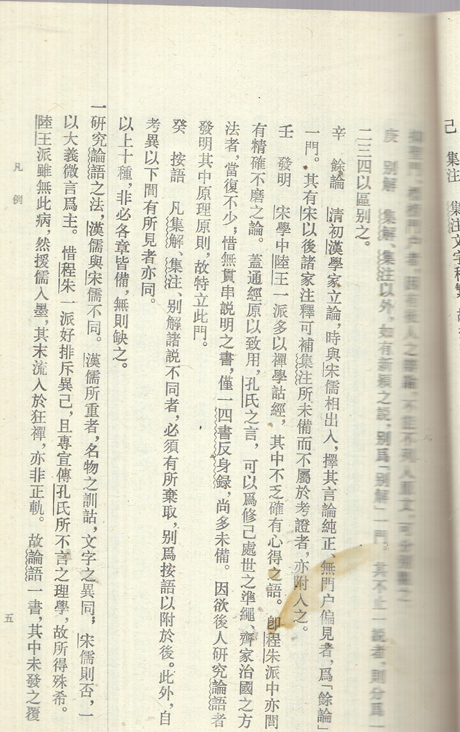 己　集注　集注文字
庚　別解　集解、集注以外，如有新穎之說，別爲「別解」一門。其不止一說者，則分爲一
二三四以區別之。
辛　餘論　清初漢學家立論，時與宋儒相出入，擇其言論純正、無門户偏見者，爲「餘論」
一門。其有宋以後諸家注釋可補集注所未備而不屬於考證者，亦附入之。
壬　發明　宋學中陸王一派多以禪學詁經，其中不乏確有心得之語。即程朱派中亦間
有精確不磨之論。蓋通經原以致用，孔氏之言，可以爲修己處世之準繩、齊家治國之方
法者，當復不少；惜無貫串說明之書，僅一四書反身録，尚多未備。因欲後人研究論語者
發明其中原理原則，故特立此門。
癸　按語　凡集解、集注、別解諸說不同者，必須有所棄取，別爲按語以附於後。此外，自
考異以下間有所見者亦同。
以上十種，非必各章皆備，無則缺之。
一研究論語之法，漢儒與宋儒不同。漢儒所重者，名物之訓詁，文字之異同；宋儒則否，一
以大義微言爲主。惜程朱一派好排斥異己，且專宣傳孔氏所不言之理學，故所得殊希。
陸王派雖無此病，然援儒入墨，其末流入於狂禪，亦非正軌。故論語一書，其中未發之覆
凡例
五